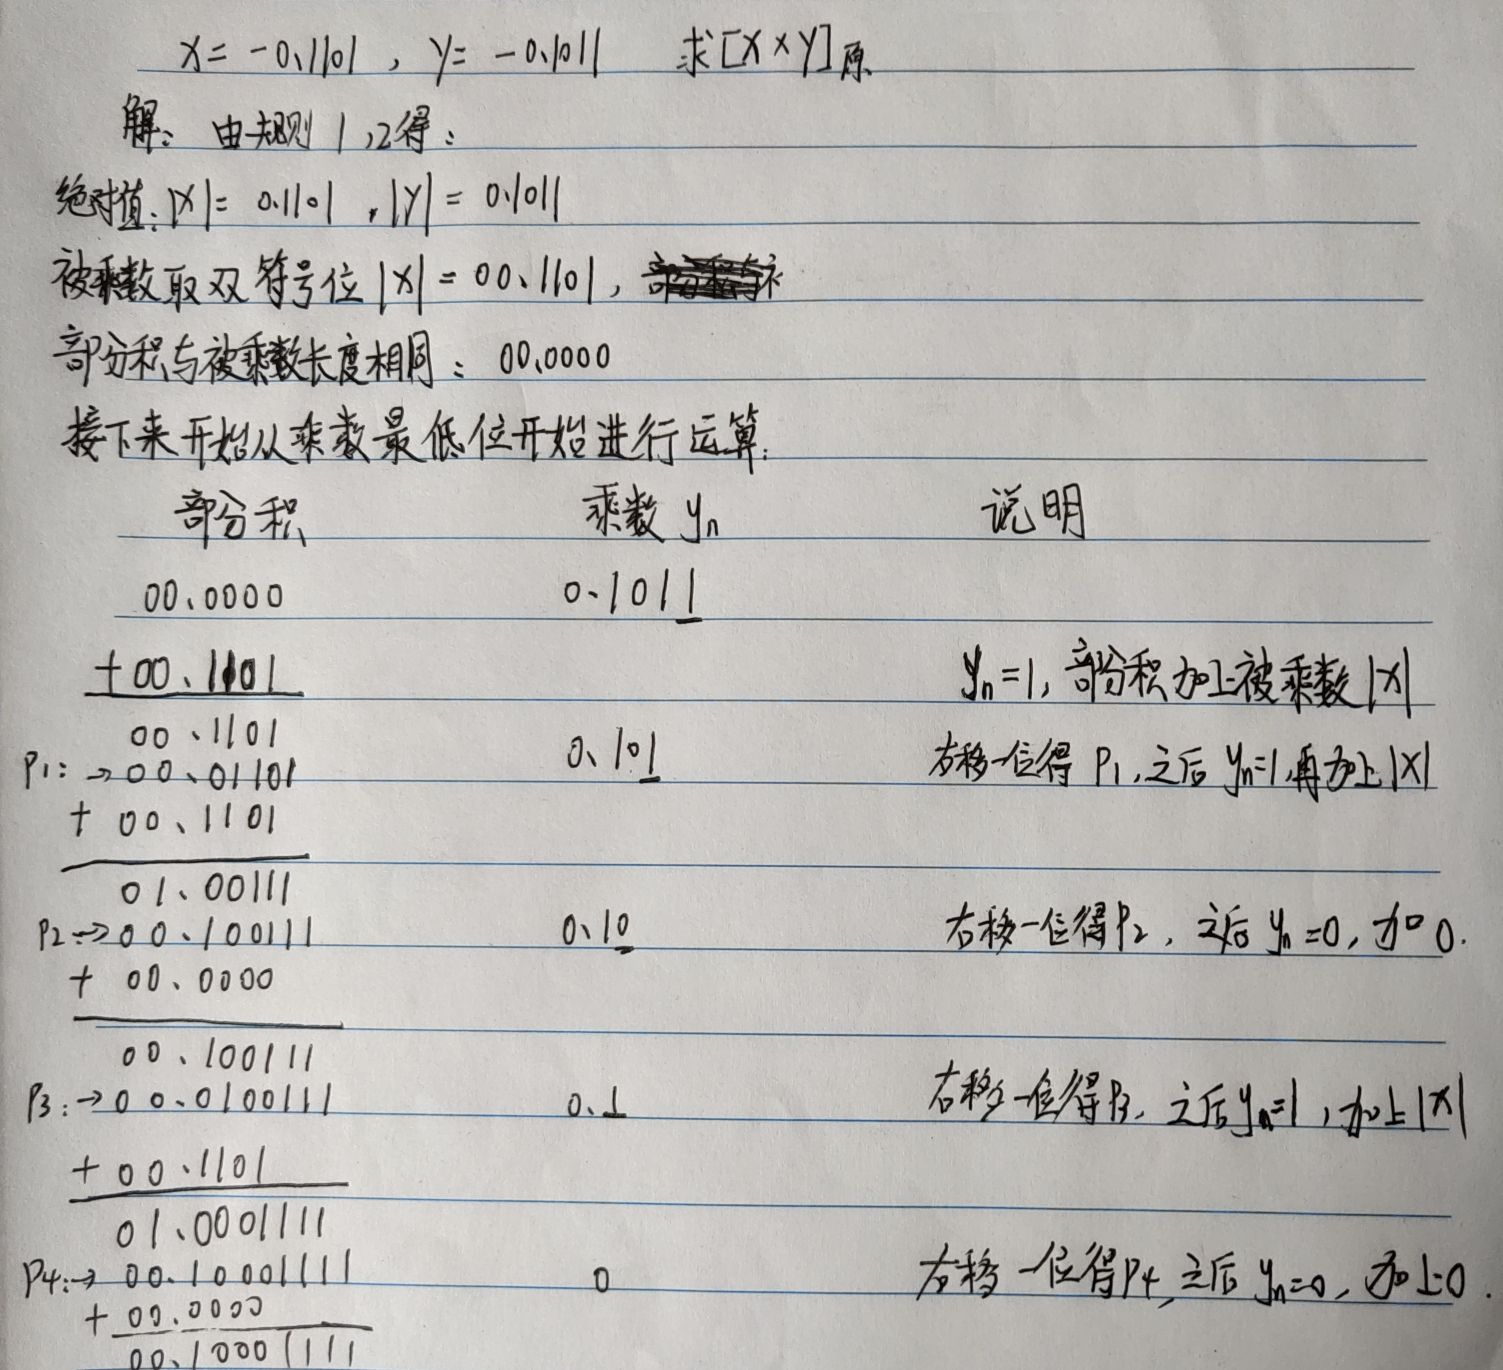 x= -0.1101 , y= -0.1011 求[X×Y]原
解: 由规则1,2得:
绝对值:|X|= 0.1101 ,|Y|= 0.1011
被乘数取双符号位|X|= 00.1101,
部分积与被乘数长度相同: 00.0000
接下来开始从乘数最低位开始进行运算:
部分积 乘数 yn 说明
00.0000 0.1011
+00.1101 yn=1, 部分积加上被乘数|X|
00.1101
P1: →00.01101 0.101 右移一位得 P1,之后 yn=1,再加上|X|
+ 00.1101
01.00111
P2:→00.100111 0.10 右移一位得P2, 之后 yn=0, 加0.
+ 00.0000
00.100111
P3:→00.0100111 0.1 右移一位得P3, 之后yn=1, 加上|X|
+00.1101
01.0001111
P4:→ 00.10001111 0 右移一位得P4,之后 yn=0, 加上0.
+00.0000
00.10001111